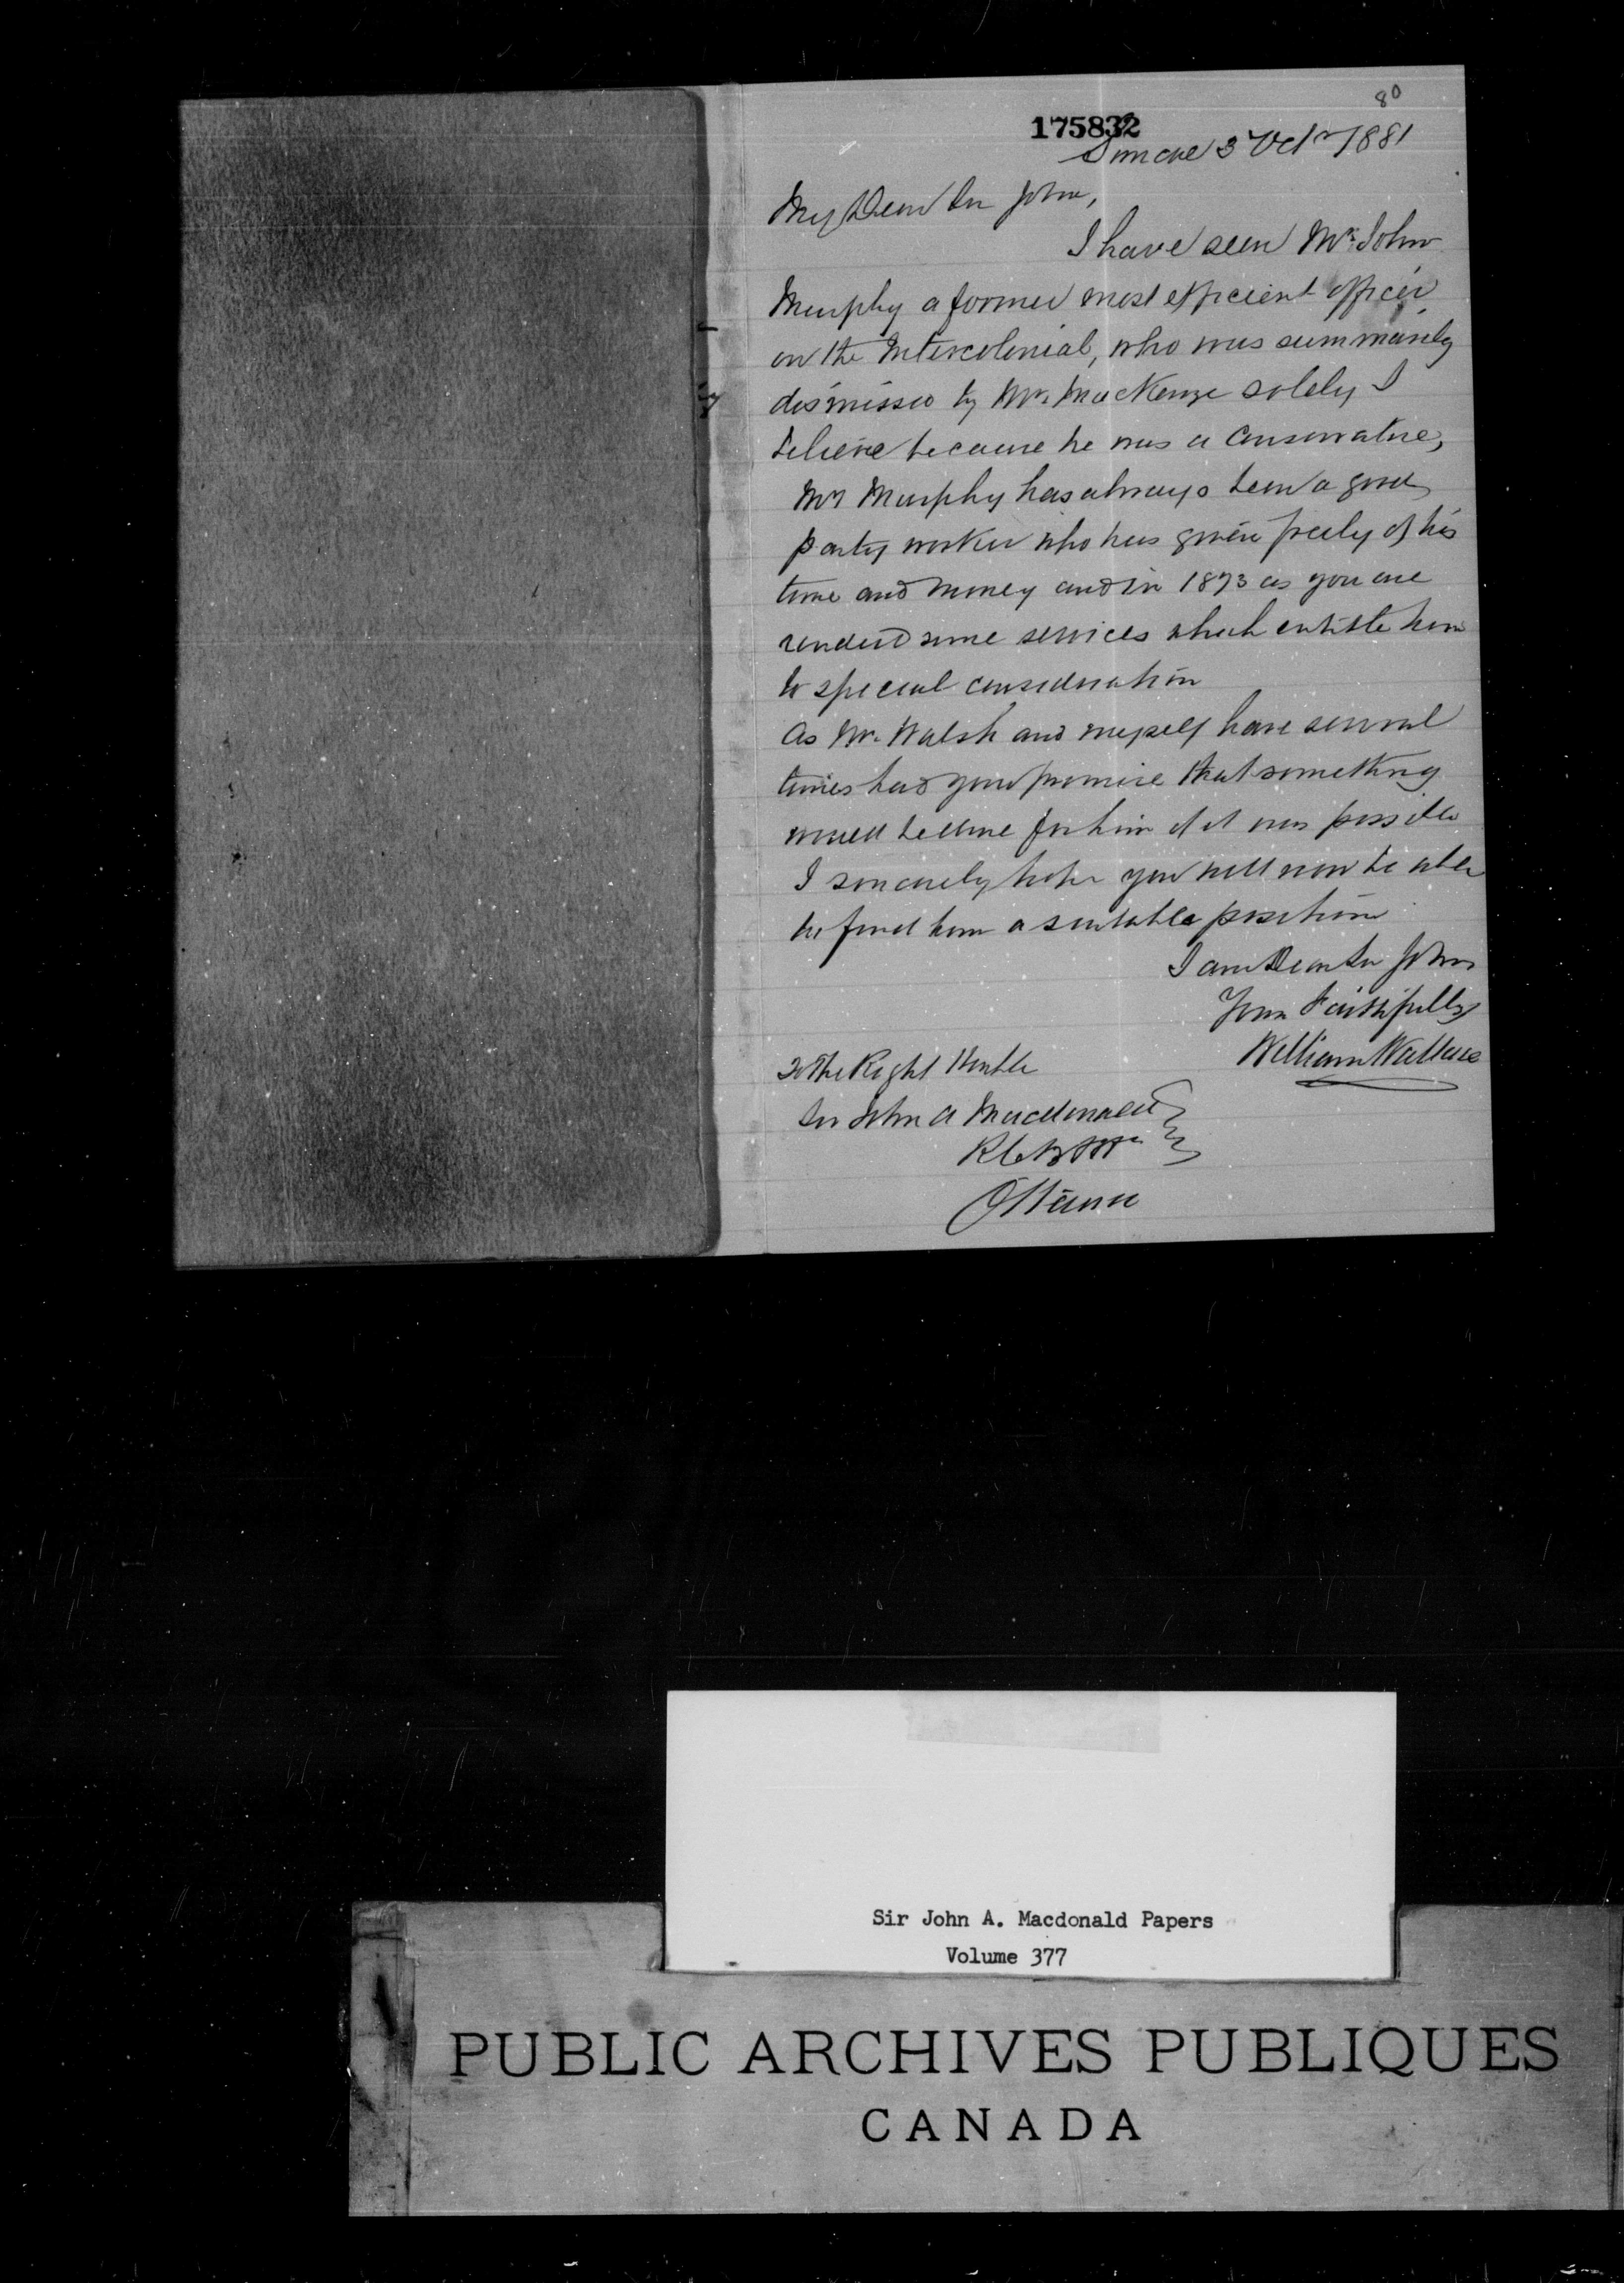 80
175832
Simcoe 3 Octr 1881
My Dear Sir John,
I have seen Mr. John
Murphy a former most efficient officer
on the Intercolonial, who was summarily
dismissed by Mr. MacKenzie solely I
believe because he was a Conservative,
Mr Murphy has always been a good
party worker who has given freely of his
time and money and in 1873 as you are
rendered some services which entitle him
to special consideration
As Mr. Walsh and myself have several
times had your promise that something
would be done for him if it was possible
I sincerely hope you will now be able
to find him a suitable position
I am Dear Sir John
Yours Faithfully
William Wallace
To The Right Honble
Sir John A Macdonald
K.C.B.
Ottawa
Sir John A. Macdonald Papers
Volume 377
PUBLIC ARCHIVES PUBLIQUES
CANADA